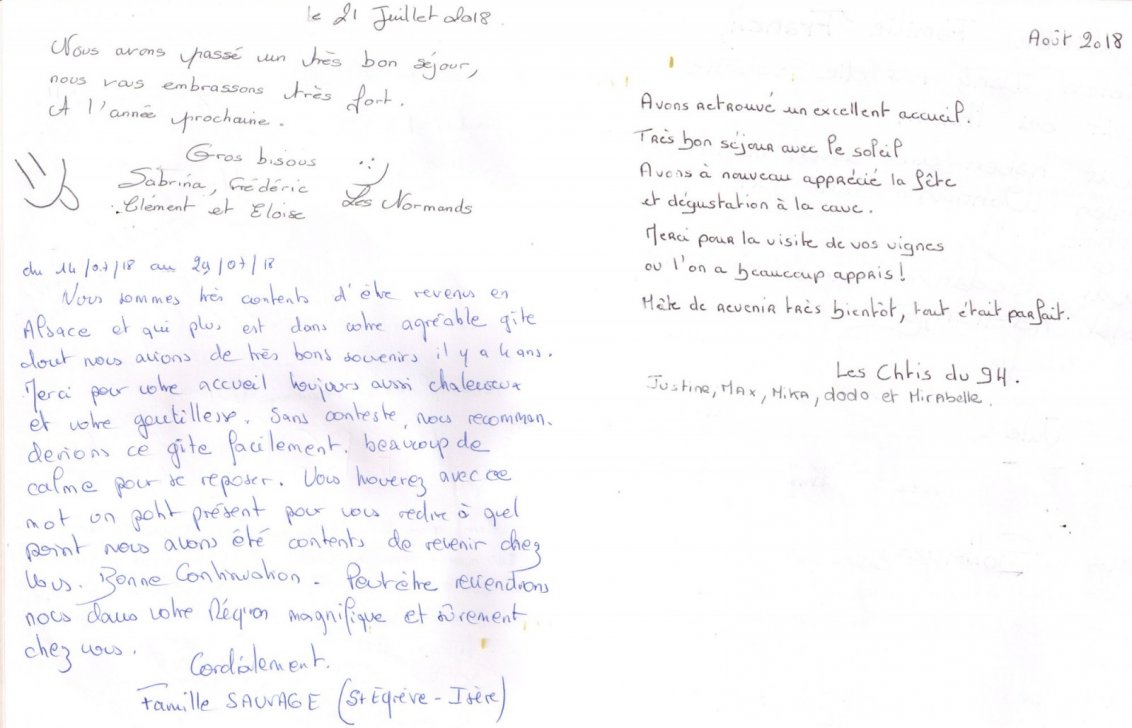 le 21 Juillet 2018.
Nous avons passé un très bon séjour,
nous vous embrassons très fort.
A l'année prochaine.
Gros bisous
Sabrina, Frédéric
Clément et Eloïse
Les Normands
du 14/07/18 au 29/07/18
Nous sommes très contents d'être revenus en
Alsace et qui plus est dans votre agréable gîte
dont nous avions de très bons souvenirs il y a 4 ans.
Merci pour votre accueil toujours aussi chaleureux
et votre gentillesse. Sans conteste, nous recomman-
derions ce gîte facilement. beaucoup de
calme pour se reposer. Vous trouverez avec ce
mot un petit présent pour vous redire à quel
point nous avons été contents de revenir chez
Vous. Bonne Continuation. Peut être reviendrons
nous dans votre Région magnifique et sûrement
chez vous.
Cordialement.
Famille SAUVAGE (St Egrève - Isère)
Août 2018
Avons retrouvé un excellent accueil.
Très bon séjour avec le soleil
Avons à nouveau apprécié la fête
et dégustation à la cave.
Merci pour la visite de vos vignes
ou l'on a beaucoup appris !
Hâte de revenir très bientôt, tout était parfait.
Les Chtis du 94.
Justine, Max, Mika, dodo et Mirabelle.